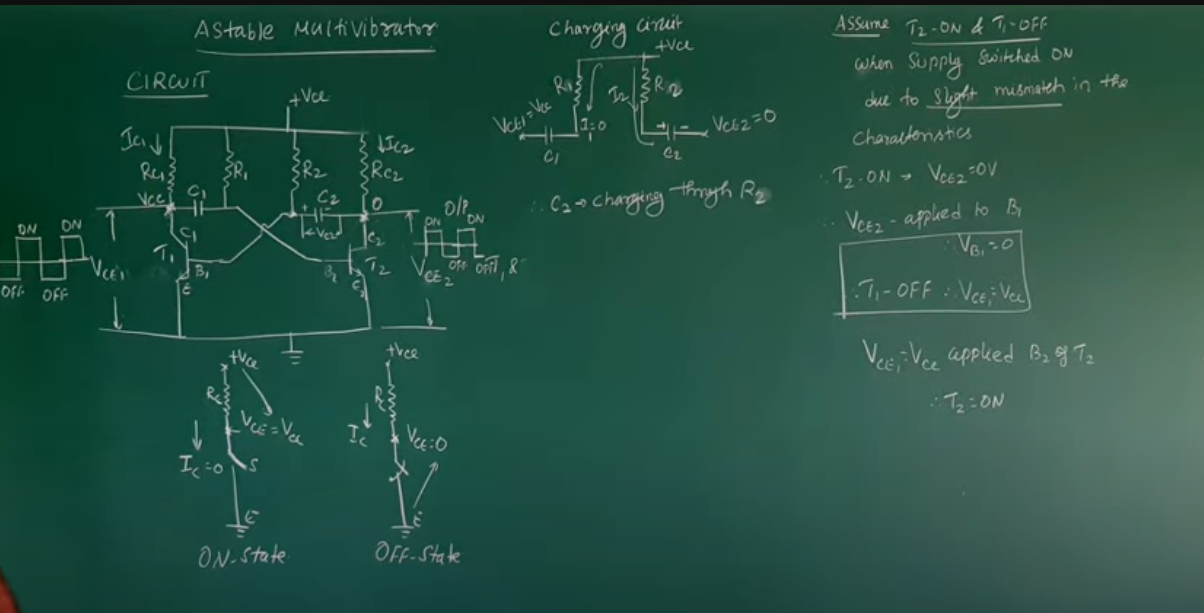 Astable Multivibrator
CIRCUIT
+Vcc
IC1
IC2
RC1
R1
R2
RC2
Vcc
C1
C2
O
O/P
VC2
ON
ON
OFF
OFF
VCE1
T1
C1
B1
E
B2
C2
T2
E2
VCE2
ON
ON
OFF
OFF
+Vcc
RC
VCE=Vcc
IC=0
S
E
ON-State
+Vcc
RC
IC
VCE=0
E
OFF-State
Charging Circuit
+Vcc
R1
I2
R2
VCE1=Vcc
I1=0
VCE2=0
C1
C2
∴ C2→charging through R2
Assume T2-ON & T1-OFF
when Supply Switched ON
due to Slight mismatch in the
Characteristics
∴ T2-ON → VCE2=0V
∴ VCE2-applied to B1
∴ VB1=0
∴ T1-OFF ∴ VCE1=Vcc
VCE1=Vcc applied B2 of T2
∴ T2=ON